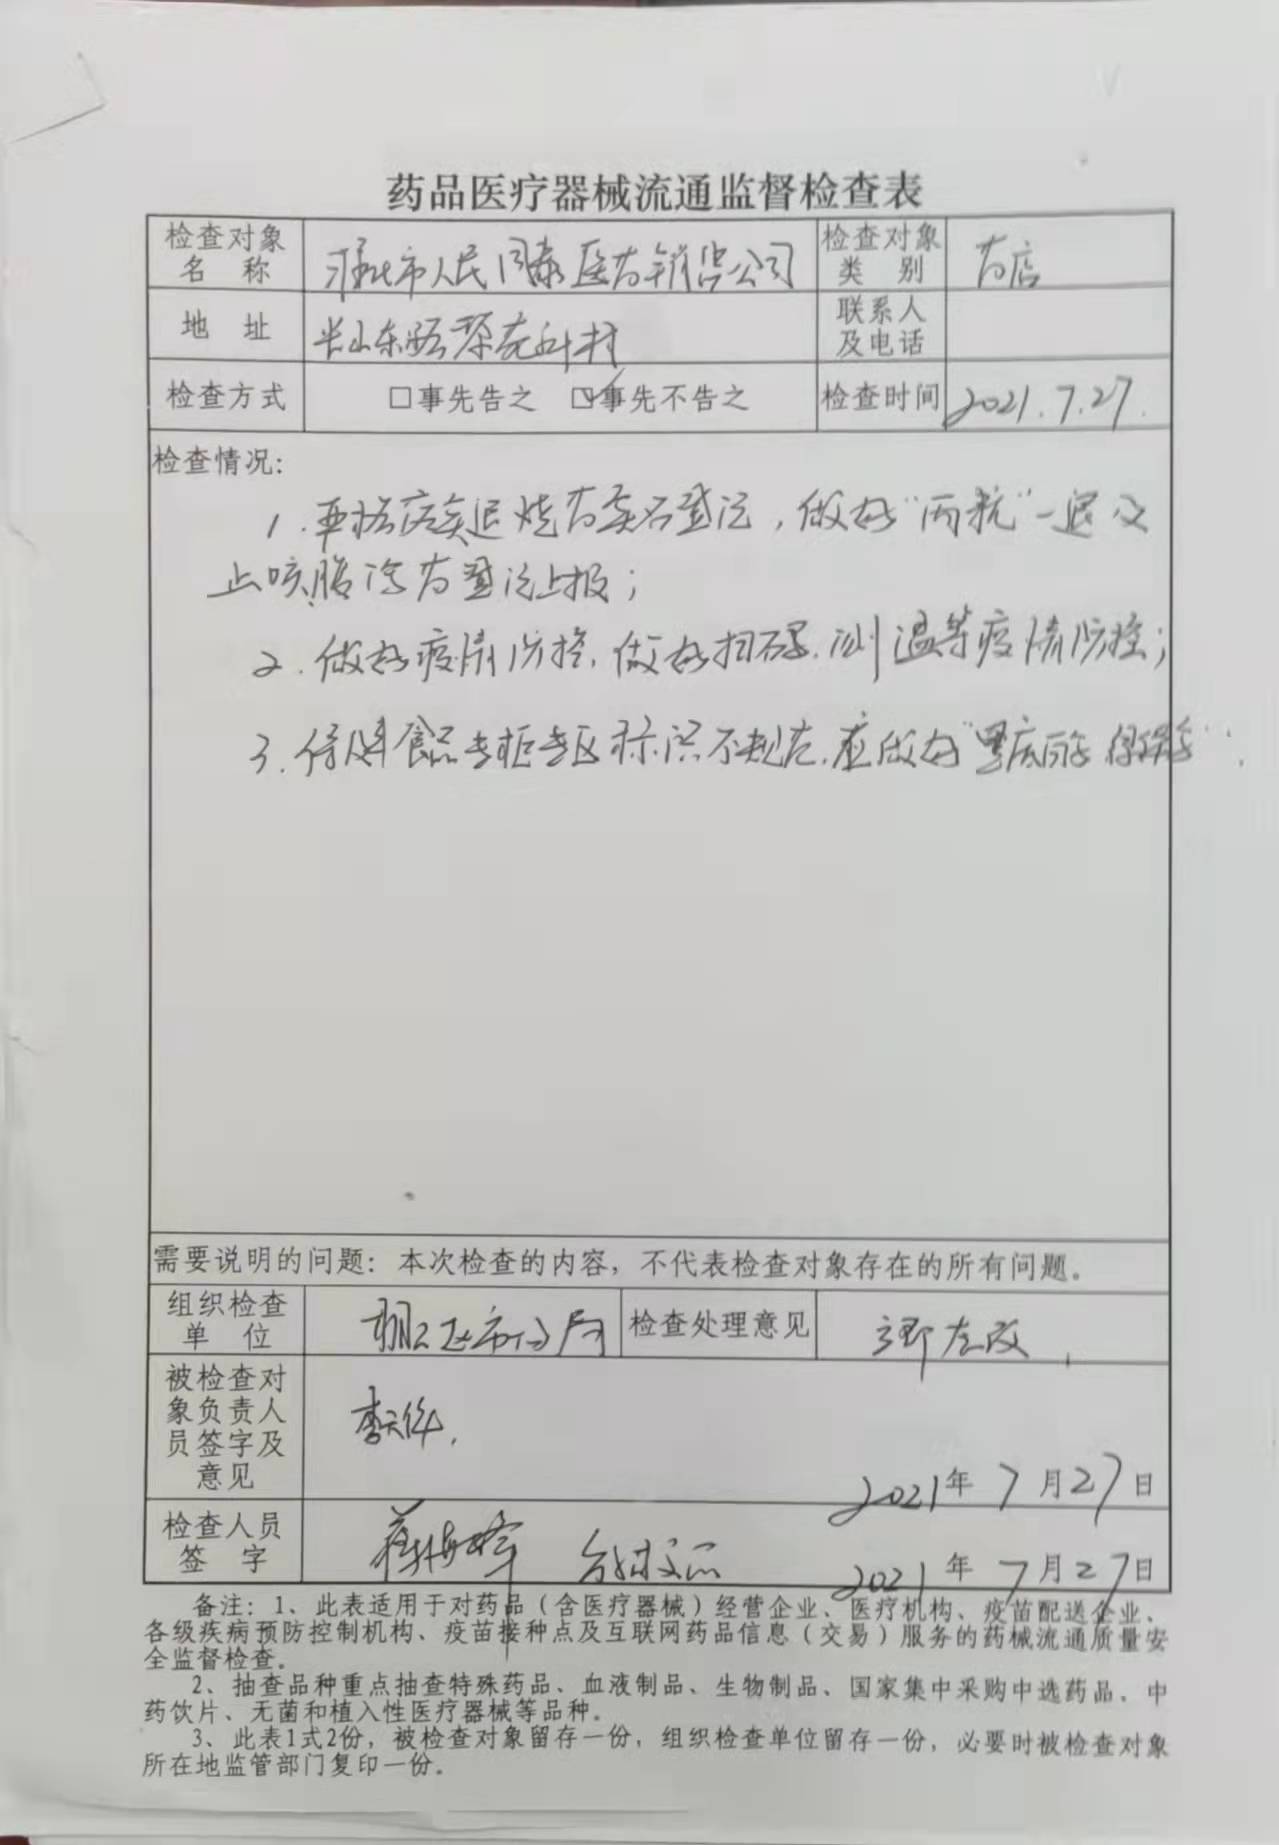 药品医疗器械流通监督检查表
检查对象
名 称
淮北市人民同泰医药销售公司
检查对象
类 别
药店
地 址
长山东路梨花新村
联系人
及电话
检查方式
□事先告之 ☑事先不告之
检查时间
2021.7.27.
检查情况:
1.严格落实退烧药实名登记,做好"两抗"一退及
止咳 药登记上报;
2.做好疫情防控,做好扫码.测温等疫情防控;
3.保健食品专柜专区标识不规范.应做好
需要说明的问题:本次检查的内容,不代表检查对象存在的所有问题。
组织检查
单 位
市 局
检查处理意见
立即整改
被检查对
象负责人
员签字及
意见
2021年7月27日
检查人员
签 字
2021年7月27日
备注:1、此表适用于对药品(含医疗器械)经营企业、医疗机构、疫苗配送企业、
各级疾病预防控制机构、疫苗接种点及互联网药品信息(交易)服务的药械流通质量安
全监督检查。
2、抽查品种重点抽查特殊药品、血液制品、生物制品、国家集中采购中选药品、中
药饮片、无菌和植入性医疗器械等品种。
3、此表1式2份,被检查对象留存一份,组织检查单位留存一份,必要时被检查对象
所在地监管部门复印一份。